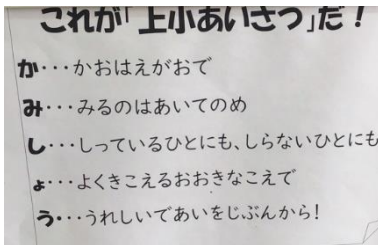 これが「上小あいさつ」だ！
か・・・かおはえがおで
み・・・みるのはあいてのめ
し・・・しっているひとにも、しらないひとにも
ょ・・・よくきこえるおおきなこえで
う・・・うれしいであいをじぶんから！